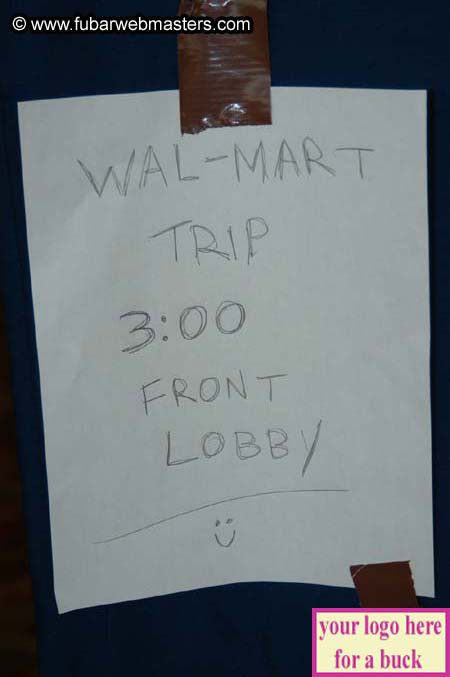 © www.fubarwebmasters.com
WAL-MART
TRIP
3:00
FRONT
LOBBY
your logo here
for a buck